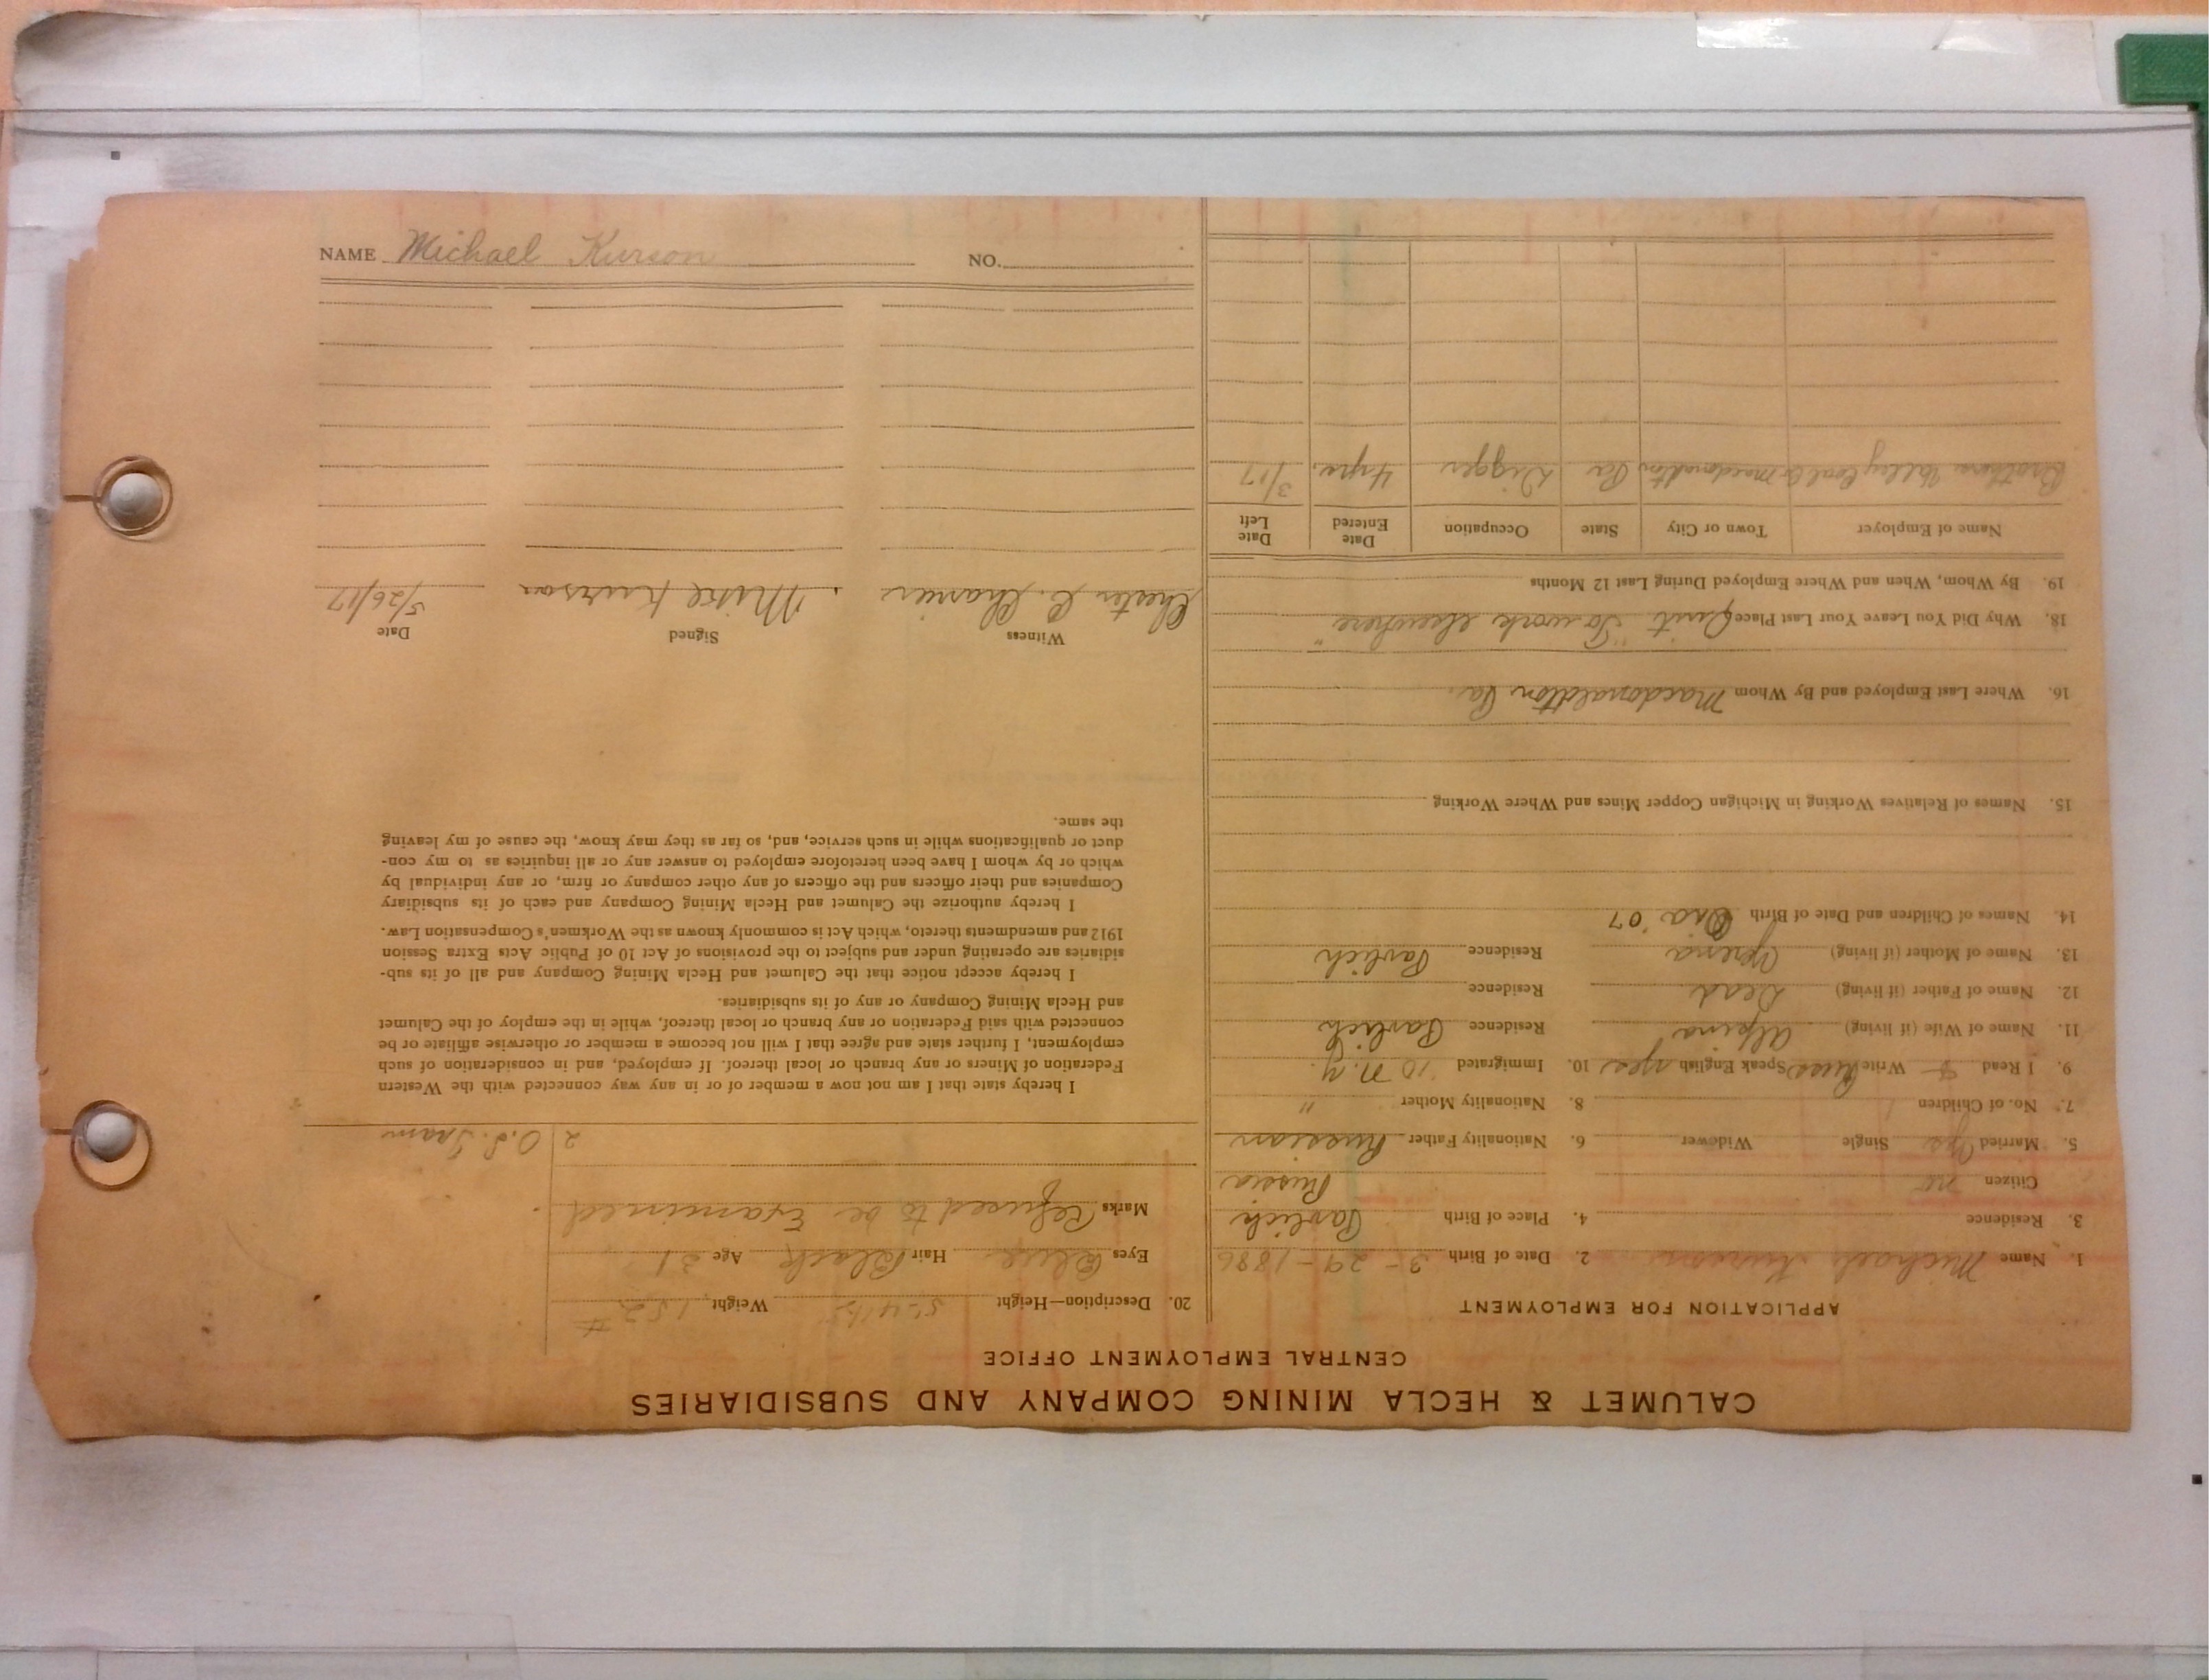 CALUMET & HECLA MINING COMPANY AND SUBSIDIARIES
CENTRAL EMPLOYMENT OFFICE
APPLICATION FOR EMPLOYMENT
1. Name Michael Kurson 2. Date of Birth 3-29-1886
3. Residence 4. Place of Birth Pavlich
Citizen no Russia
5. Married Yes Single Widower 6. Nationality Father Russian
7. No. of Children 1 8. Nationality Mother "
9. I Read & Write Russ Speak English yes 10. Immigrated '10 N.Y.
11. Name of Wife (if living) Alpina Residence Pavlich
12. Name of Father (if living) Dead Residence
13. Name of Mother (if living) Residence Pavlich
14. Names of Children and Date of Birth '07
15. Names of Relatives Working in Michigan Copper Mines and Where Working
16. Where Last Employed and By Whom Macdonaldton Pa.
18. Why Did You Leave Your Last Place Quit "To work elsewhere"
19. By Whom, When and Where Employed During Last 12 Months
Name of Employer Town or City State Occupation Date Entered Date Left
Brothers Valley Coal Co Macdonaldton Pa Digger 4 yrs. 3/17
20. Description—Height 5'-4 1/2 Weight 152 #
Eyes Blue Hair Black Age 31
Marks Refused to be Examined.
2 O.S. Tram
I hereby state that I am not now a member of or in any way connected with the Western
Federation of Miners or any branch or local thereof. If employed, and in consideration of such
employment, I further state and agree that I will not become a member or otherwise affiliate or be
connected with said Federation or any branch or local thereof, while in the employ of the Calumet
and Hecla Mining Company or any of its subsidiaries.
I hereby accept notice that the Calumet and Hecla Mining Company and all of its sub-
sidiaries are operating under and subject to the provisions of Act 10 of Public Acts Extra Session
1912 and amendments thereto, which Act is commonly known as the Workmen's Compensation Law.
I hereby authorize the Calumet and Hecla Mining Company and each of its subsidiary
Companies and their officers and the officers of any other company or firm, or any individual by
which or by whom I have been heretofore employed to answer any or all inquiries as to my con-
duct or qualifications while in such service, and, so far as they may know, the cause of my leaving
the same.
Witness Signed Date
Chester C. Mike Kurson 5/26/17
NAME Michael Kurson NO.